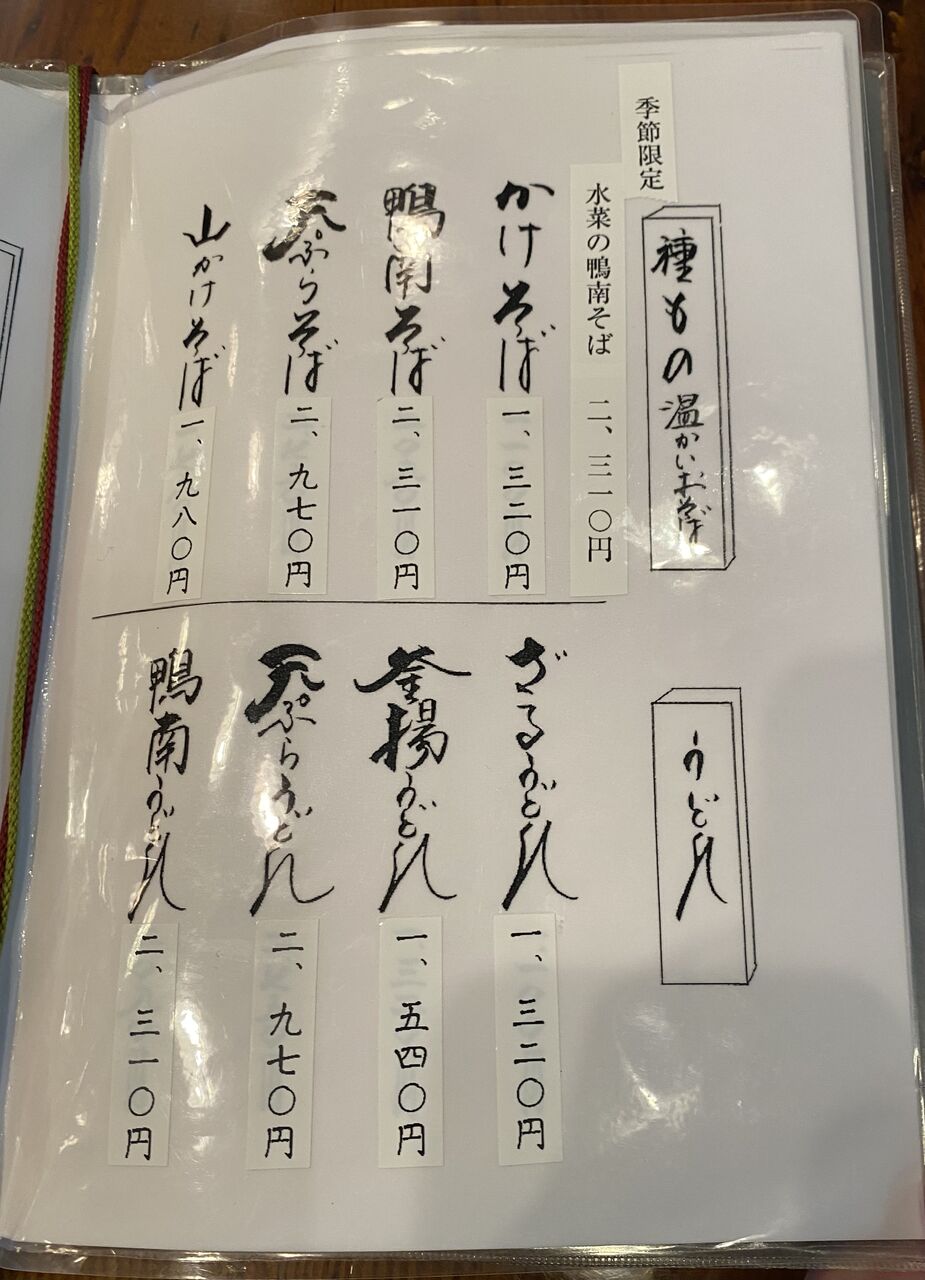 季節限定
種もの 温かいおそば
水菜の鴨南そば 二、三一〇円
かけそば 一、三二〇円
鴨南そば 二、三一〇円
天ぷらそば 二、九七〇円
山かけそば 一、九八〇円
うどん
ざるうどん 一、三二〇円
釜揚うどん 一、五四〇円
天ぷらうどん 二、九七〇円
鴨南うどん 二、三一〇円